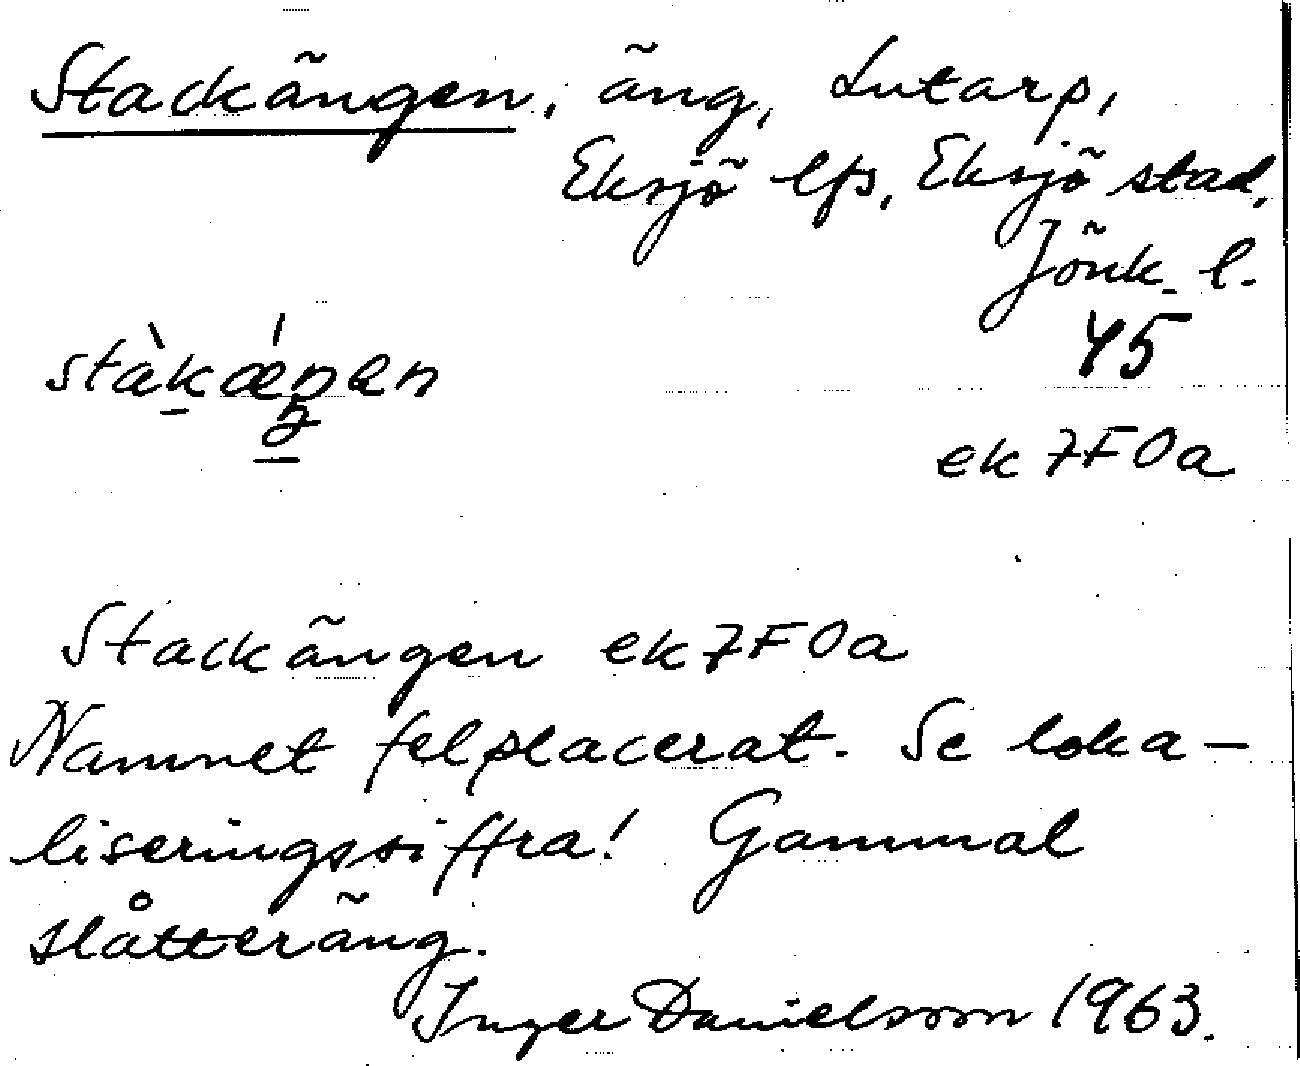 Stackängen, äng, Lutarp,
Eksjö lfs, Eksjö stad,
Jönk. l.
45
stàkǽŋen
ek 7F0a
Stackängen ek 7F0a
Namnet felplacerat. Se loka-
liseringssiffra! Gammal
slåtteräng.
Inger Danielsson 1963.